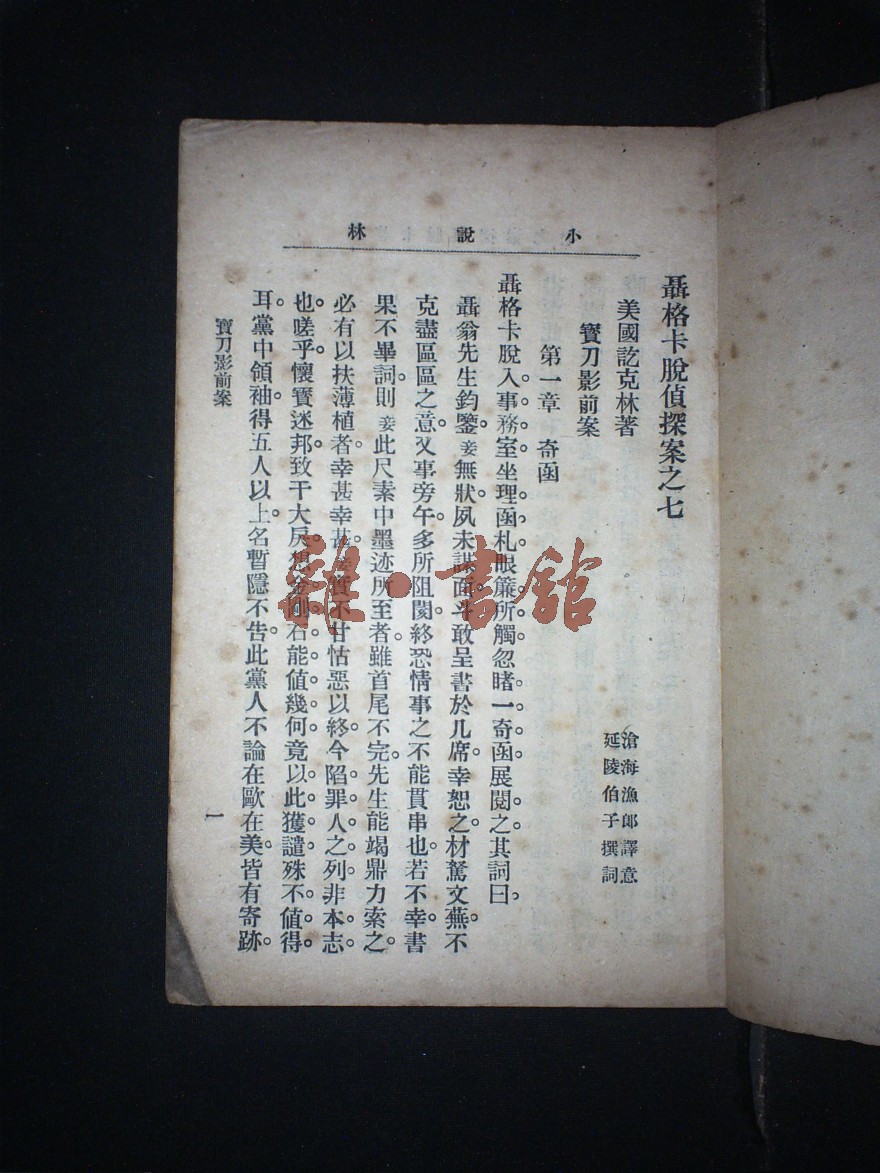 小說林
聶格卡脫偵探案之七
美國訖克林著
滄海漁郎譯意
延陵伯子撰詞
寶刀影前案
第一章 奇函
聶格卡脫入事務室坐理函札眼簾所觸忽睹一奇函展閱之其詞曰
聶翁先生鈞鑒妾無狀夙未謀面斗敢呈書於几席幸恕之材駑文蕪不
克盡區區之意又事旁午多所阻閡終恐情事之不能貫串也若不幸書
果不畢詞則妾此尺素中墨迹所至者雖首尾不完先生能竭鼎力索之
必有以扶薄植者幸甚幸甚妾實不甘怙惡以終今陷罪人之列非本志
也嗟乎懷寶迷邦致干大戾想金剛石能值幾何竟以此獲譴殊不值得
耳黨中領袖得五人以上名暫隱不告此黨人不論在歐在美皆有寄跡
寶刀影前案
一
雜·書館